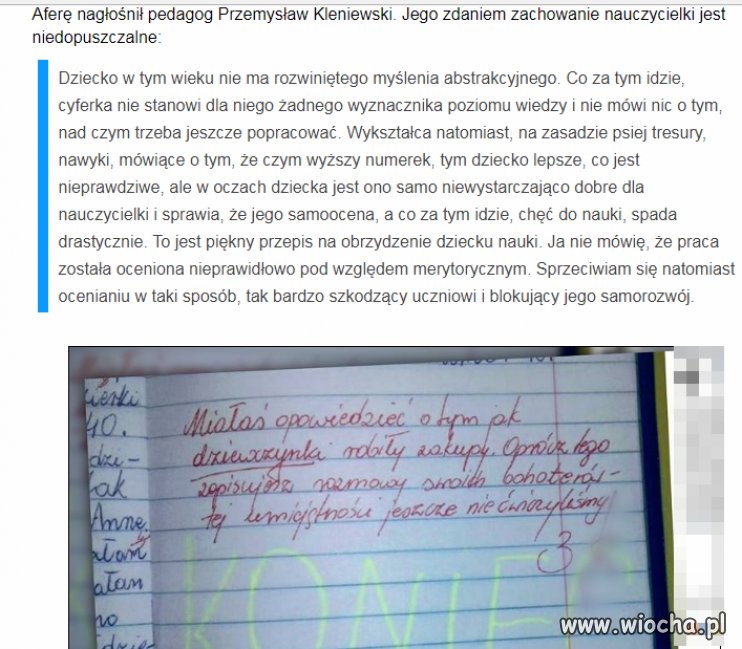 Aferę nagłośnił pedagog Przemysław Kleniewski. Jego zdaniem zachowanie nauczycielki jest
niedopuszczalne:
Dziecko w tym wieku nie ma rozwiniętego myślenia abstrakcyjnego. Co za tym idzie,
cyferka nie stanowi dla niego żadnego wyznacznika poziomu wiedzy i nie mówi nic o tym,
nad czym trzeba jeszcze popracować. Wykształca natomiast, na zasadzie psiej tresury,
nawyki, mówiące o tym, że czym wyższy numerek, tym dziecko lepsze, co jest
nieprawdziwe, ale w oczach dziecka jest ono samo niewystarczająco dobre dla
nauczycielki i sprawia, że jego samoocena, a co za tym idzie, chęć do nauki, spada
drastycznie. To jest piękny przepis na obrzydzenie dziecku nauki. Ja nie mówię, że praca
została oceniona nieprawidłowo pod względem merytorycznym. Sprzeciwiam się natomiast
ocenianiu w taki sposób, tak bardzo szkodzący uczniowi i blokujący jego samorozwój.
40. Miałaś opowiedzieć o tym jak
dzi- dziewczynka robiły zakupy. Oprócz tego
zapisujesz rozmowy swoich bohaterów -
Annę. tej umiejętności jeszcze nie ćwiczyliśmy
3
KONIEC
www.wiocha.pl